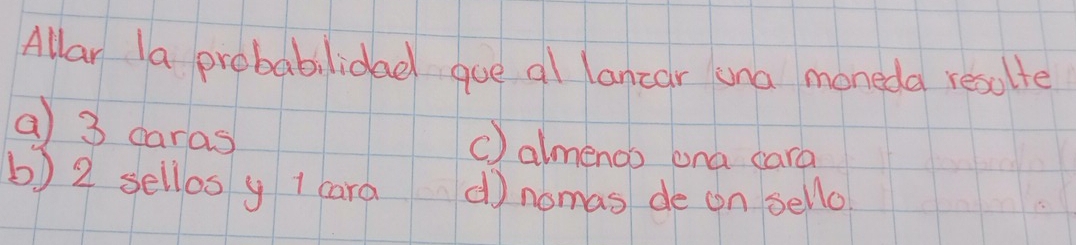 Allar la probabilidad que al lanzar una moneda resolte
a) 3 caras
b) 2 sellos y 1 cara
c) almenos una cara
d) nomas de on sello